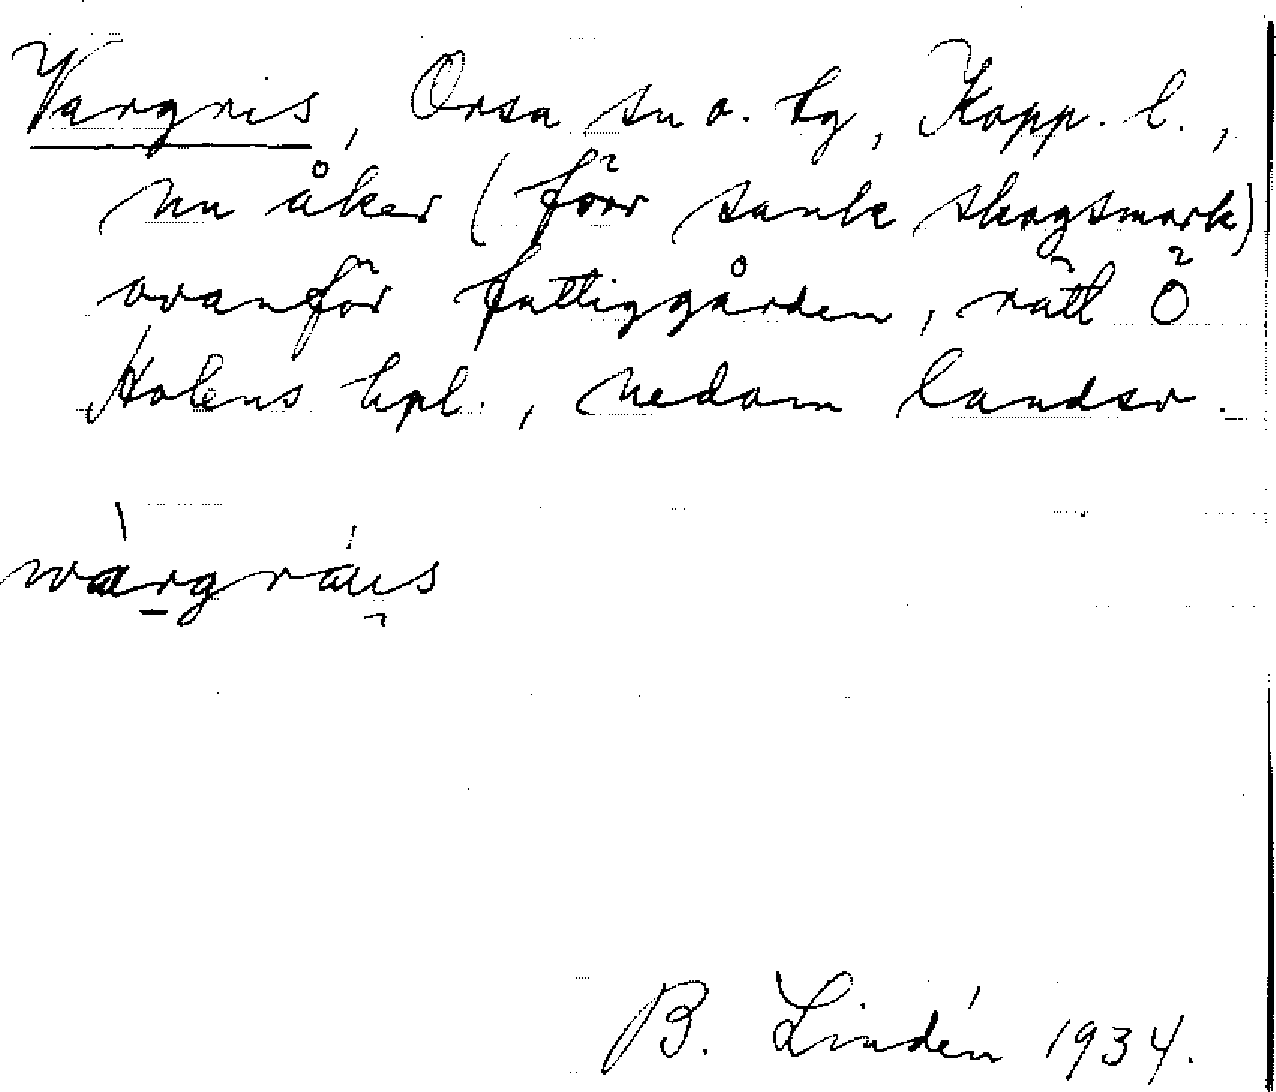 Vargnis, Orsa sn o. tg, Kopp. l.,
nu åker (förr sank skogsmark)
ovanför fattiggården, rätt Ö
Holens hpl., nedom landsv.
wàrgráis
B. Lindén 1934.